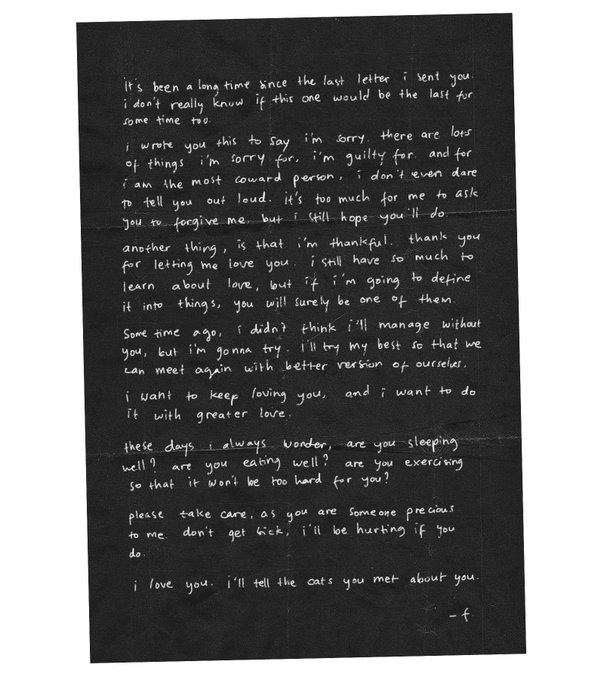 it's been a long time since the last letter i sent you.
i don't really know if this one would be the last for
some time too.
i wrote you this to say i'm sorry. there are lots
of things i'm sorry for, i'm guilty for. and for
i am the most coward person, i don't even dare
to tell you out loud. it's too much for me to ask
you to forgive me. but i still hope you'll do.
another thing, is that i'm thankful. thank you
for letting me love you. i still have so much to
learn about love, but if i'm going to define
it into things, you will surely be one of them.
some time ago, i didn't think i'll manage without
you, but i'm gonna try. i'll try my best so that we
can meet again with better version of ourselves.
i want to keep loving you, and i want to do
it with greater love.
these days i always wonder, are you sleeping
well? are you eating well? are you exercising
so that it won't be too hard for you?
please take care, as you are someone precious
to me. don't get sick, i'll be hurting if you
do.
i love you. i'll tell the cats you met about you.
- f